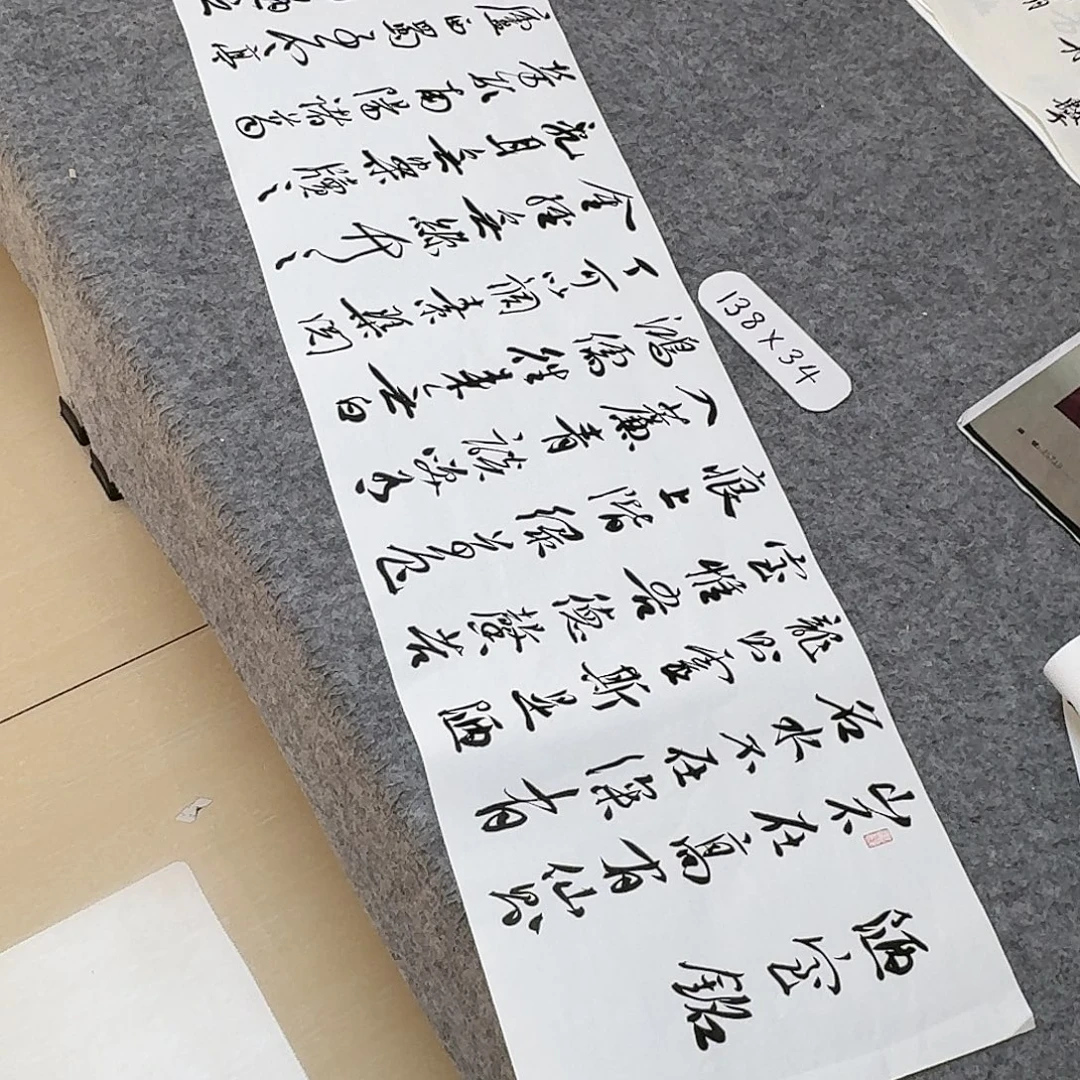 陋室銘
山不在高有仙则
名水不在深有
龍则靈斯是陋
室惟吾德馨苔
痕上階绿草色
入簾青談笑有
鴻儒往来无白
丁可以調素琴阅
金經无絲竹之
乱耳无案牘之
勞形南陽諸葛
廬西蜀子云亭
陋之
138×34